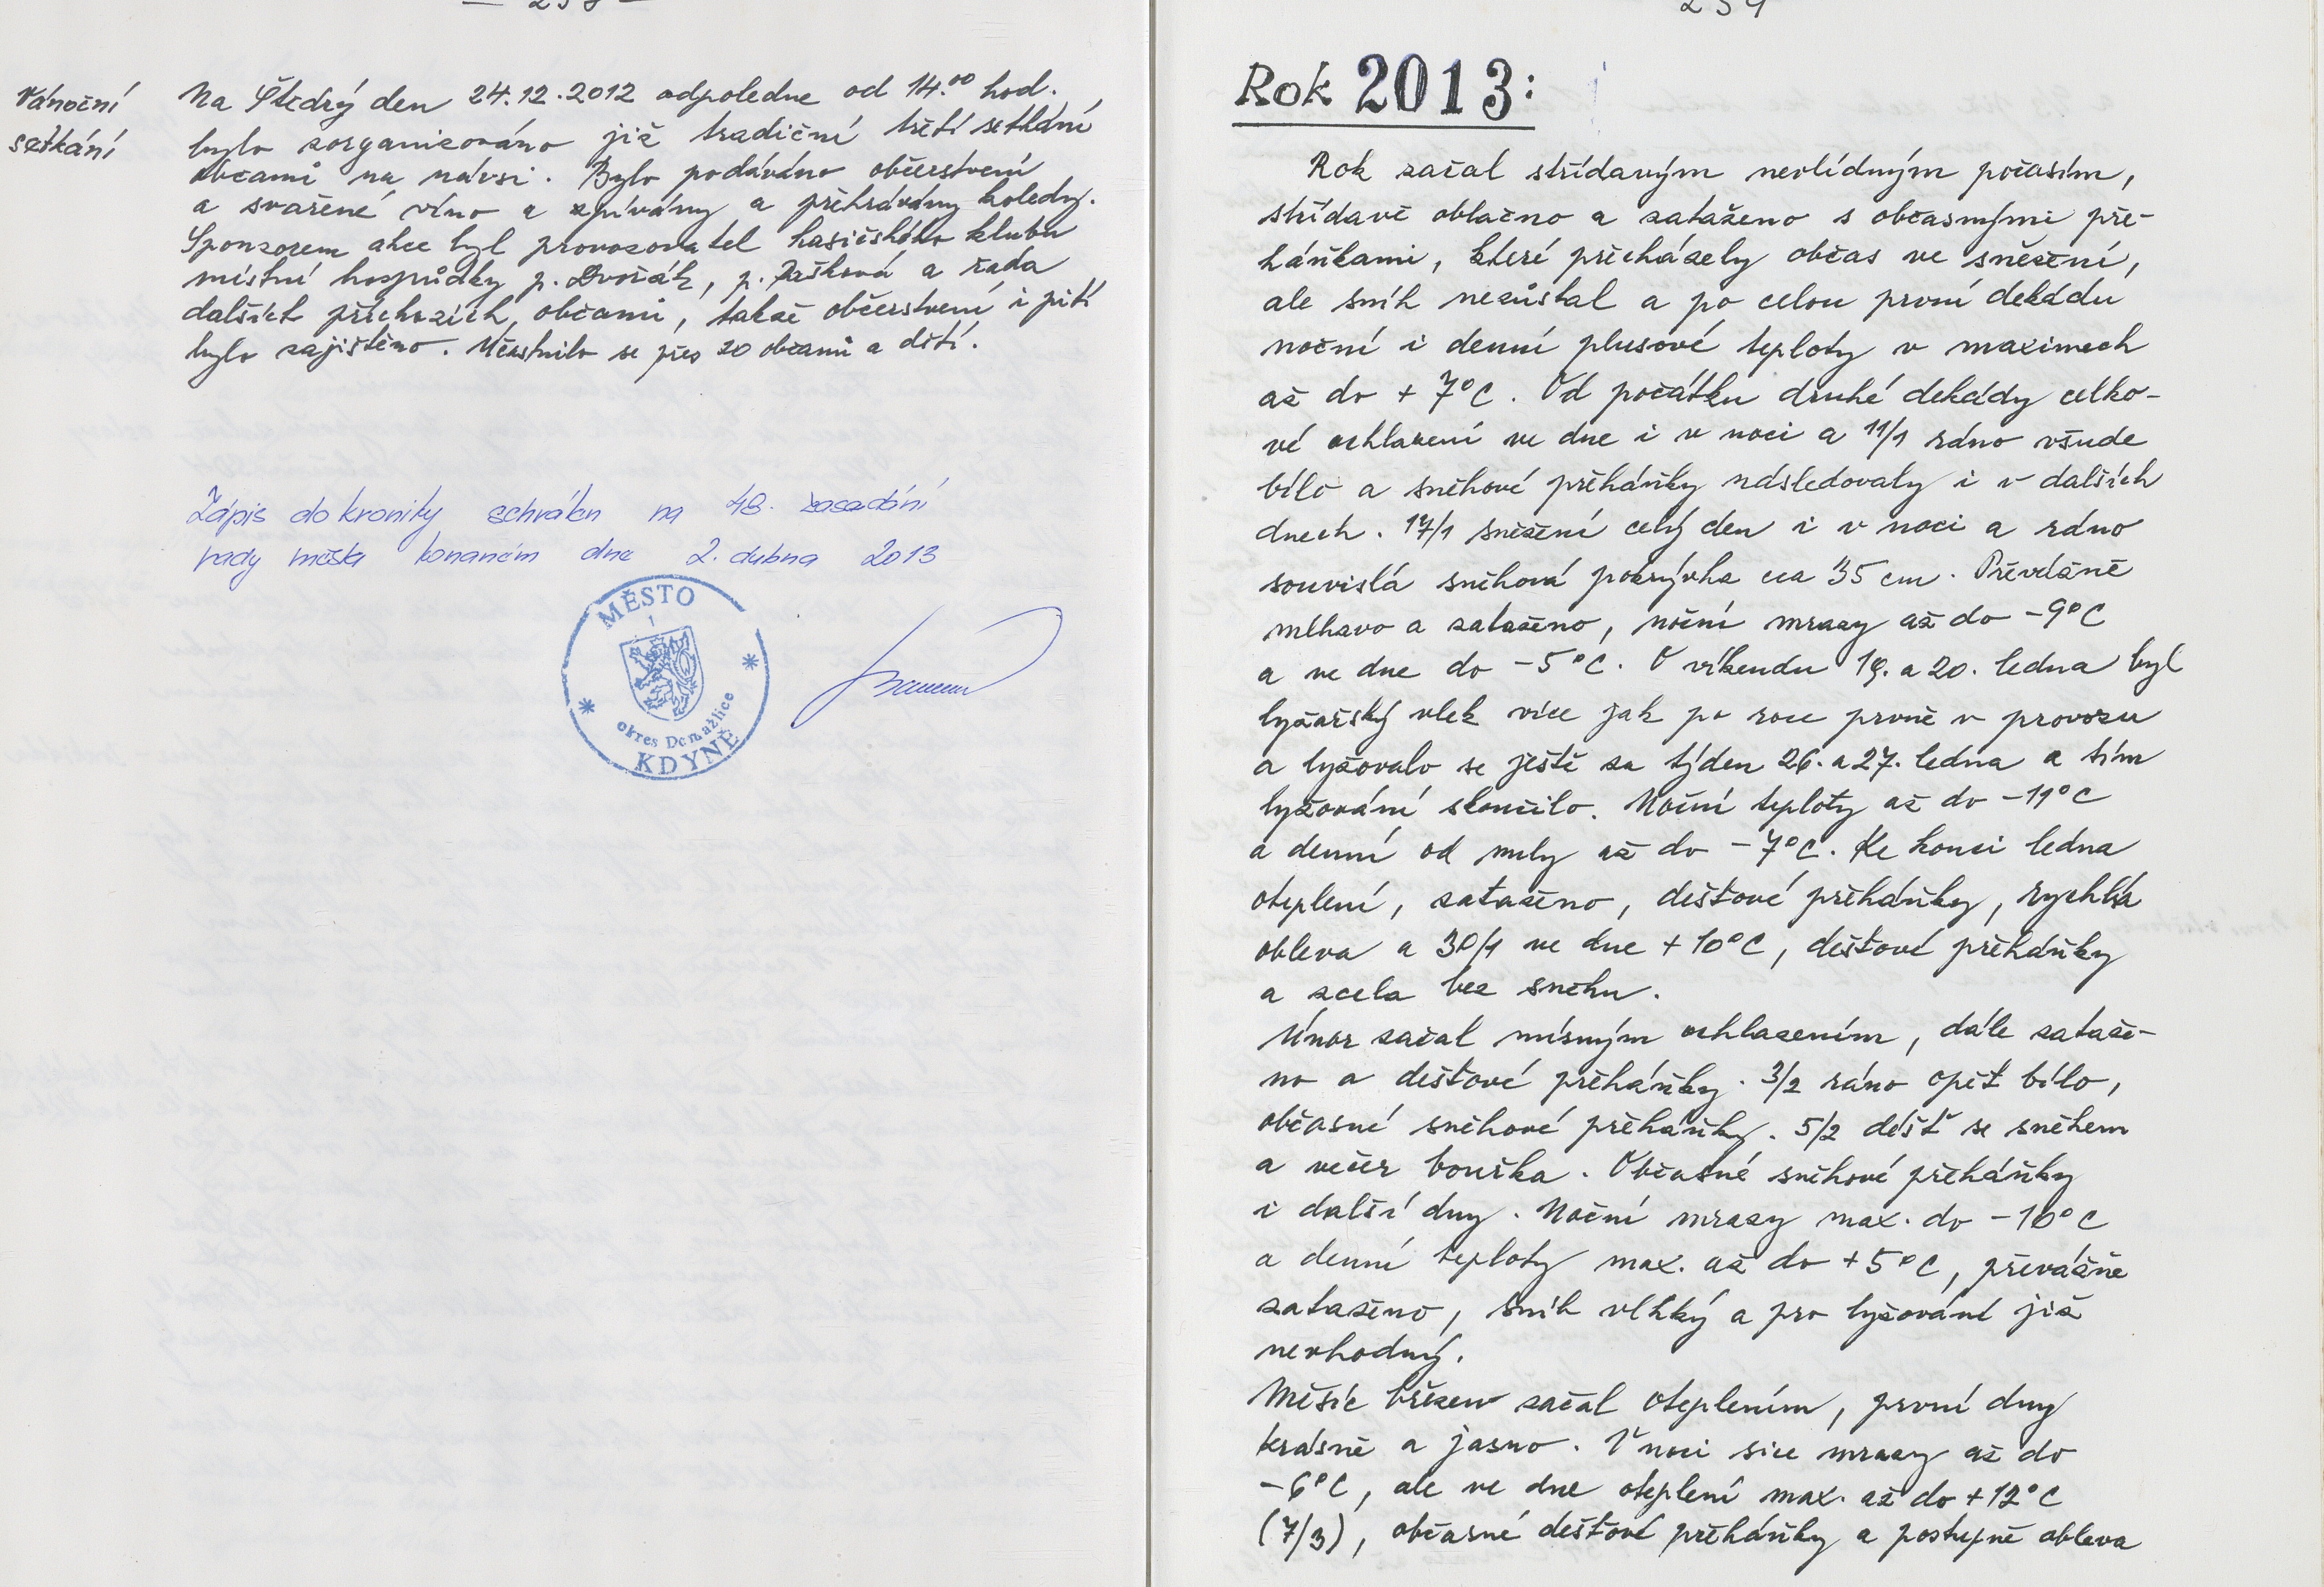 — 258 —
Vánoční
setkání
Na Štědrý den 24.12.2012 odpoledne od 14.00 hod.
bylo zorganizováno již tradiční třetí setkání
občanů na návsi. Bylo podáváno občerstvení
a svařené víno a zpívány a přehrávány koledy.
Sponzorem akce byl provozovatel hasičského klubu
místní hospůdky p. Dvořák, p. a řada
dalších příchozích občanů, takže občerstvení i pití
bylo zajištěno. Účastnilo se přes 20 občanů a dětí.
Zápis do kroniky schválen na 48. zasedání
rady města konaném dne 2. dubna 2013
MĚSTO
okres Domažlice
KDYNĚ
259
Rok 2013:
Rok začal střídavým nevlídným počasím,
střídavě oblačno a zataženo s občasnými pře-
háňkami, které přecházely občas ve sněžení,
ale sníh nezůstal a po celou první dekádu
noční i denní plusové teploty v maximech
až do + 7°C. Od počátku druhé dekády celko-
vé ochlazení ve dne i v noci a 11/1 ráno všude
bílo a sněhové přeháňky následovaly i v dalších
dnech. 17/1 sněžení celý den i v noci a ráno
souvislá sněhová pokrývka cca 35 cm. Převážně
mlhavo a zataženo, noční mrazy až do -9°C
a ve dne do -5°C. O víkendu 19. a 20. ledna byl
lyžařský vlek více jak po roce prvně v provozu
a lyžovalo se ještě za týden 26. a 27. ledna a tím
lyžování skončilo. Noční teploty až do -11°C
a denní od nuly až do -7°C. Ke konci ledna
oteplení, zataženo, dešťové přeháňky, rychlá
obleva a 30/1 ve dne +10°C, dešťové přeháňky
a zcela bez sněhu.
Únor začal mírným ochlazením, dále zataže-
no a dešťové přeháňky. 3/2 ráno opět bílo,
občasné sněhové přeháňky. 5/2 déšť se sněhem
a večer bouřka. Občasné sněhové přeháňky
i další dny. Noční mrazy max. do -10°C
a denní teploty max. až do +5°C, převážně
zataženo, sníh vlhký a pro lyžování již
nevhodný.
Měsíc březen začal oteplením, první dny
krásně a jasno. V noci sice mrazy až do
-6°C, ale ve dne oteplení max. až do +12°C
(7/3), občasné dešťové přeháňky a postupně obleva